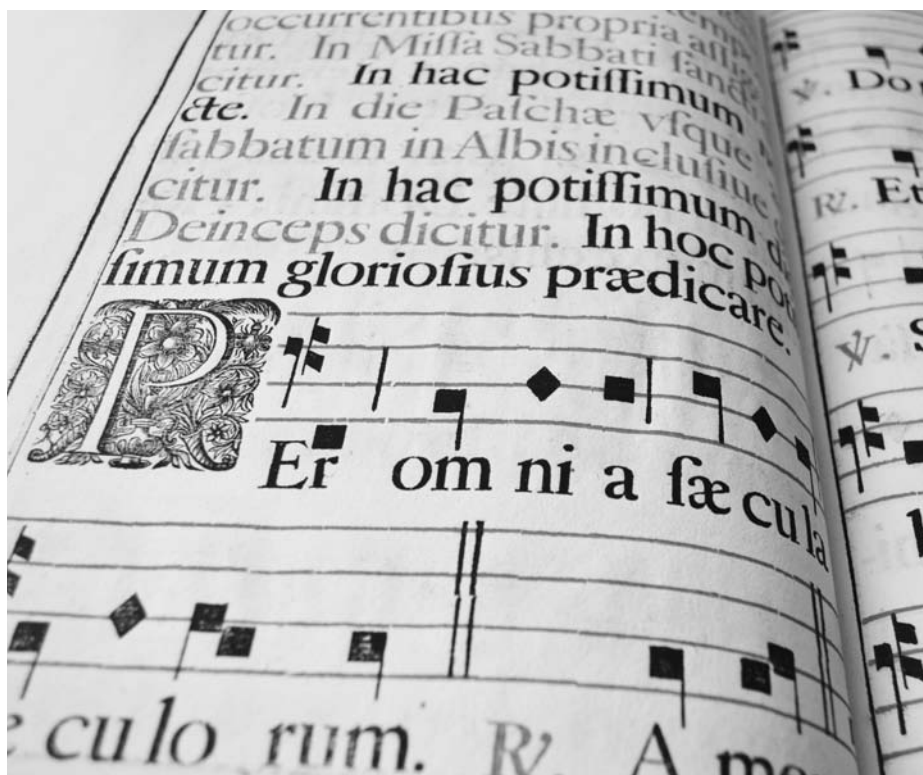 occurrentibus propria aſſig
tur. In Miſſa Sabbati ſanc
citur. In hac potiſſimum
cte. In die Paſchæ vſque
ſabbatum in Albis incluſiue
citur. In hac potiſſimum d
Deinceps dicitur. In hoc pot
ſimum glorioſius prædicare.
PEr om ni a ſæ cu la
culo rum. ℟. A me
℣. Do
℟. E
℣. S